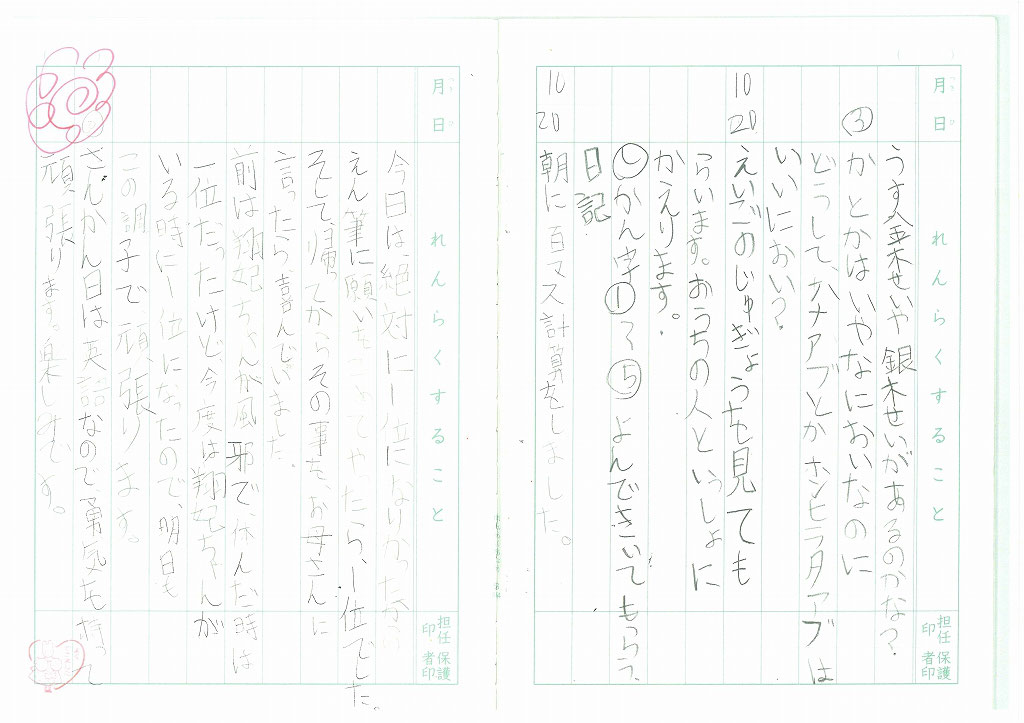 月 日 れんらくすること 担任印 保護者印
うす金木せいや銀木せいがあるのかな?
③ かとかはいやなにおいなのに
どうして、ハナアブとかホソヒラタアブは
いいにおい?
10 20 えいごのじゅぎょうも見ても
らいます。おうちの人といっしょに
かえります。
し かん字①〜⑤よんできいてもらう、
日記
10 20 朝に百マス計算をしました。
月 日 れんらくすること 担任印 保護者印
今日は、絶対に一位になりたかったから
えん筆に願いをこめてやったら、一位でした。
そして、帰ってからその事を、お母さんに
言ったら、喜んでいました。
前は翔妃ちゃんが風邪で、休んだ時は
一位だったけど、今度は翔妃ちゃんが
いる時に一位になったので、明日も
この調子で、頑張ります。
さんかん日は英語なので、勇気を持って
頑張ります。楽しみです。